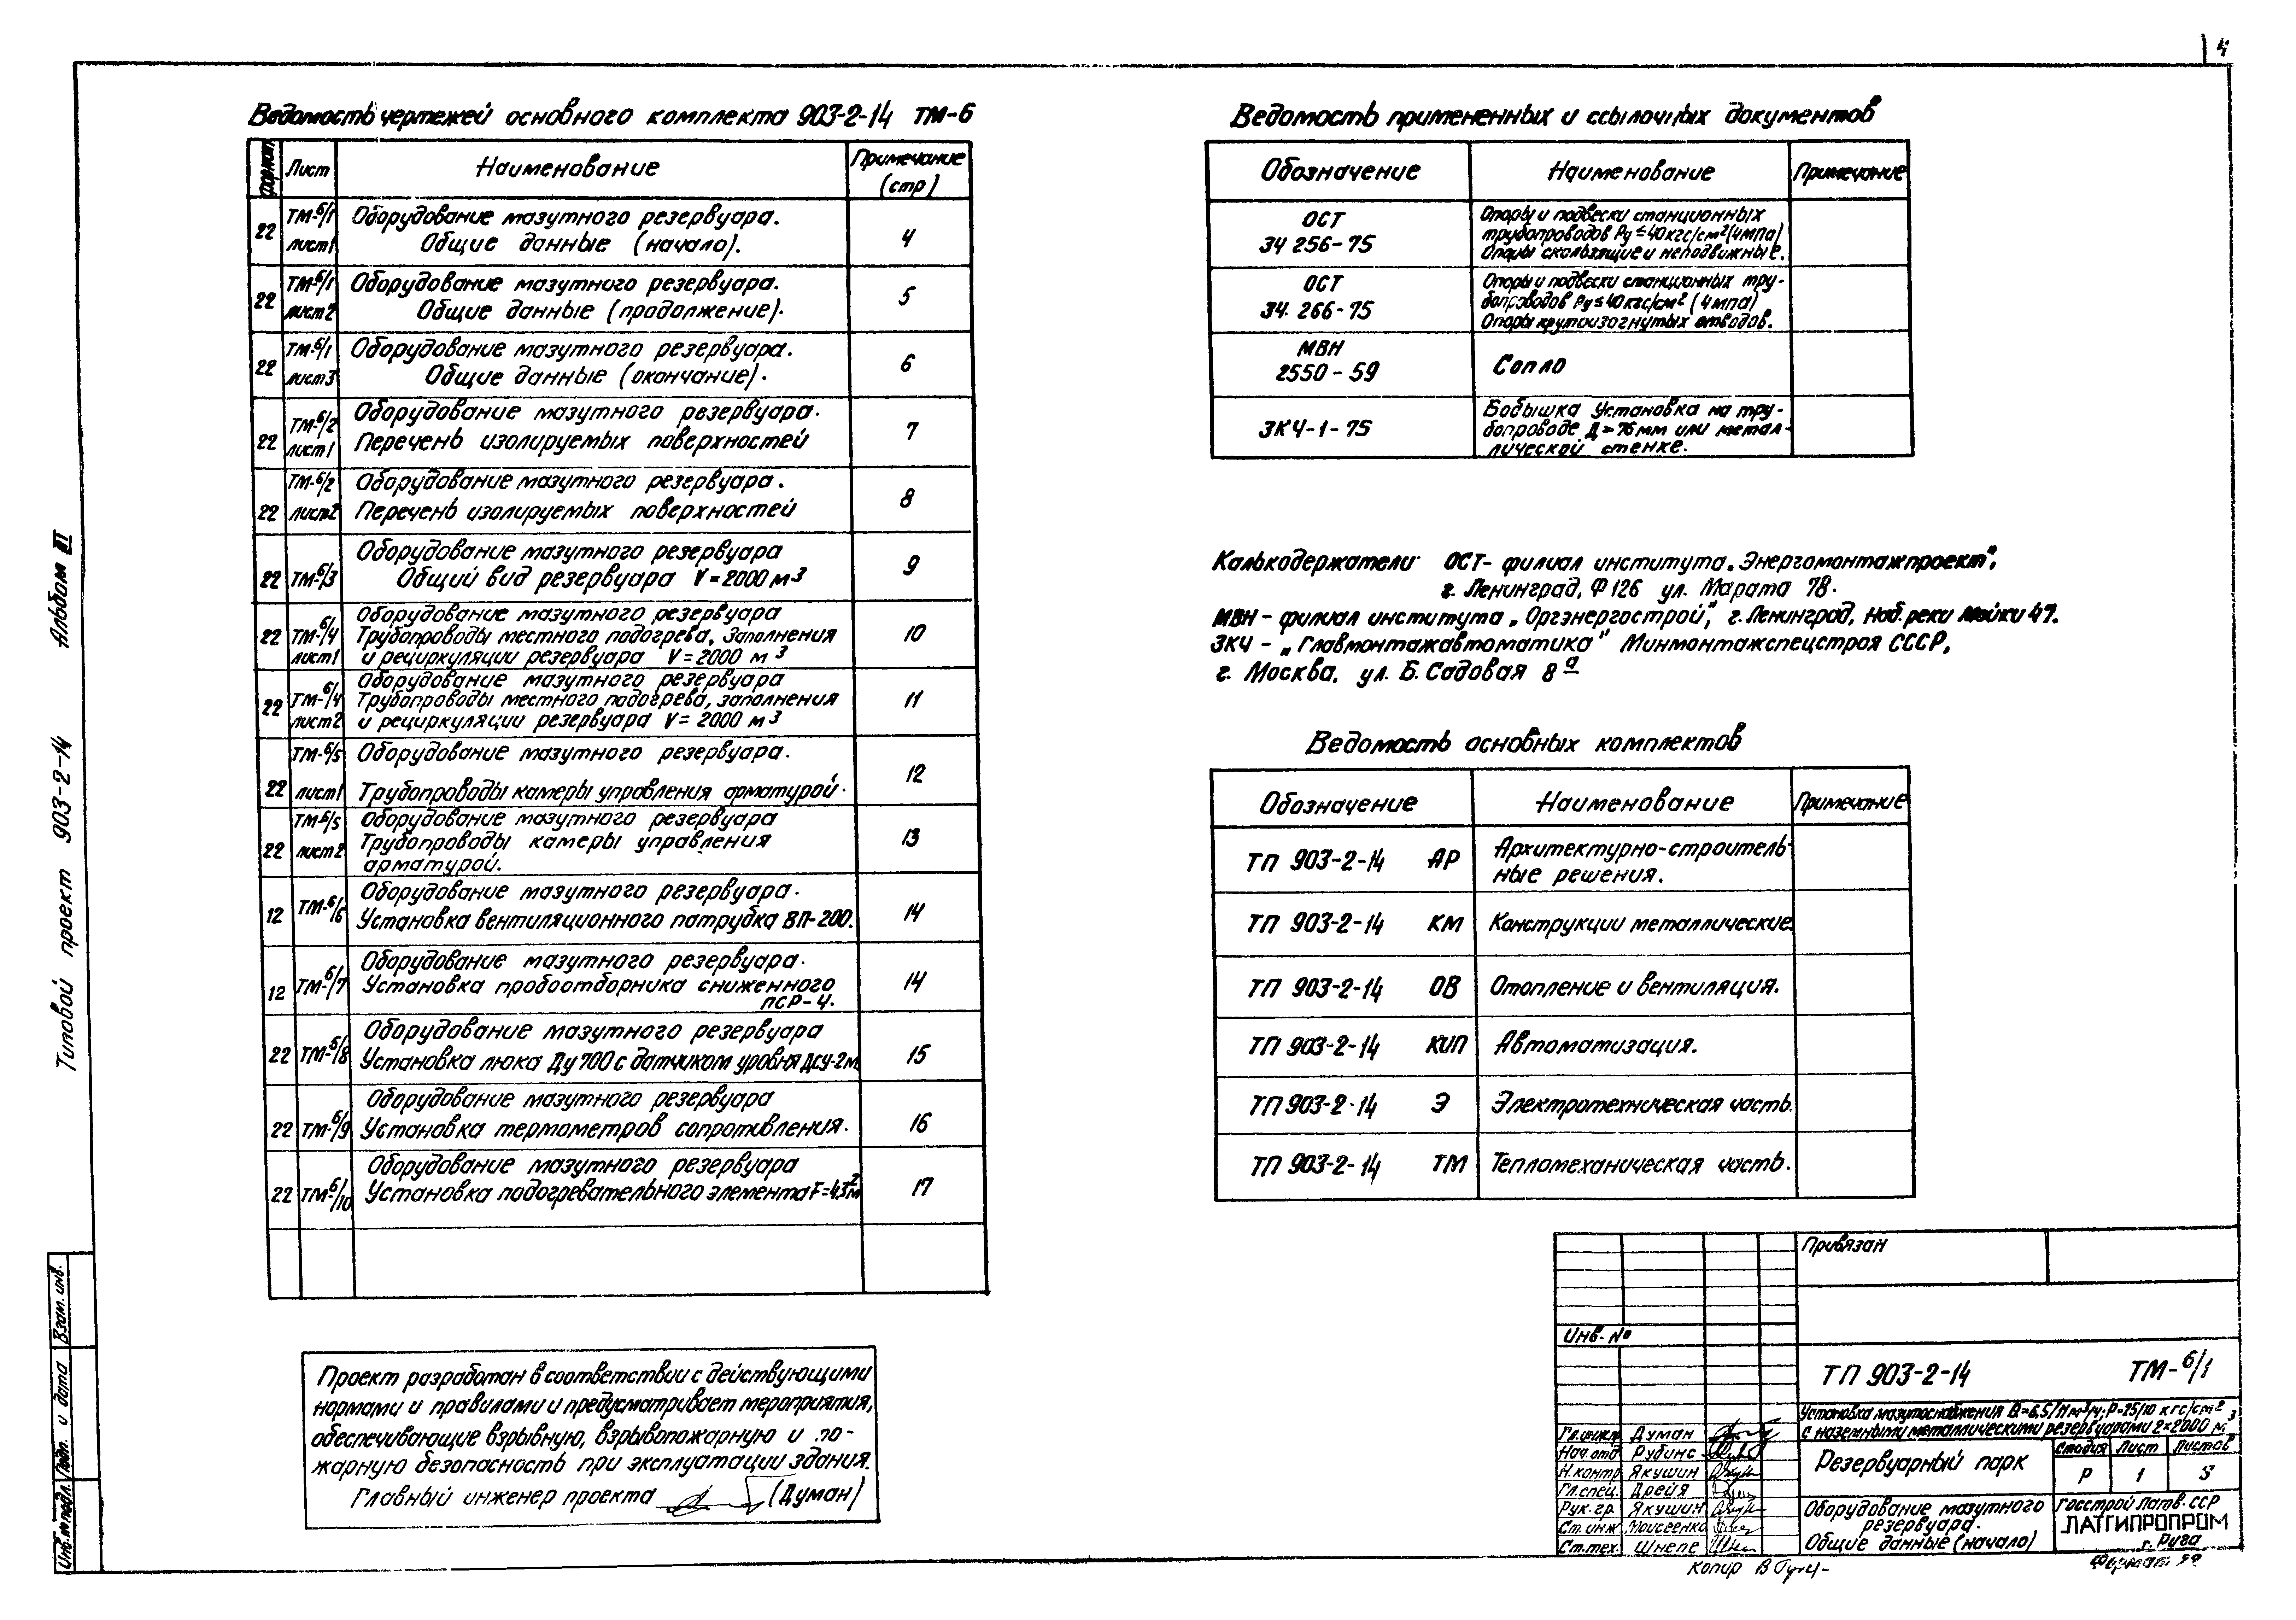 4
Ведомость чертежей основного комплекта 903-2-14 ТМ-6
Формат Лист Наименование Примечание (стр)
22 ТМ-6/1 лист1 Оборудование мазутного резервуара.
Общие данные (начало). 4
22 ТМ-6/1 лист2 Оборудование мазутного резервуара.
Общие данные (продолжение). 5
22 ТМ-6/1 лист3 Оборудование мазутного резервуара.
Общие данные (окончание). 6
22 ТМ-6/2 лист1 Оборудование мазутного резервуара.
Перечень изолируемых поверхностей 7
22 ТМ-6/2 лист2 Оборудование мазутного резервуара.
Перечень изолируемых поверхностей 8
22 ТМ-6/3 Оборудование мазутного резервуара
Общий вид резервуара V=2000 м3 9
22 ТМ-6/4 лист1 Оборудование мазутного резервуара
Трубопроводы местного подогрева, заполнения
и рециркуляции резервуара V=2000 м3 10
22 ТМ-6/4 лист2 Оборудование мазутного резервуара
Трубопроводы местного подогрева, заполнения
и рециркуляции резервуара V=2000 м3 11
22 ТМ-6/5 лист1 Оборудование мазутного резервуара.
Трубопроводы камеры управления арматурой. 12
22 ТМ-6/5 лист2 Оборудование мазутного резервуара
Трубопроводы камеры управления
арматурой. 13
12 ТМ-6/6 Оборудование мазутного резервуара.
Установка вентиляционного патрубка ВП-200. 14
12 ТМ-6/7 Оборудование мазутного резервуара.
Установка пробоотборника сниженного
ПСР-4. 14
22 ТМ-6/8 Оборудование мазутного резервуара
Установка люка Ду 700 с датчиком уровня ДСУ-2М 15
22 ТМ-6/9 Оборудование мазутного резервуара
Установка термометров сопротивления. 16
22 ТМ-6/10 Оборудование мазутного резервуара
Установка подогревательного элемента F=4,3м2 17
Проект разработан в соответствии с действующими
нормами и правилами и предусматривает мероприятия,
обеспечивающие взрывную, взрывопожарную и по-
жарную безопасность при эксплуатации здания.
Главный инженер проекта (Думан)
Ведомость примененных и ссылочных документов
Обозначение Наименование Примечание
ОСТ
34 256-75
Опоры и подвески станционных
трубопроводов Ру≤40кгс/см2(4мпа)
Опоры скользящие и неподвижные.
ОСТ
34. 266-75
Опоры и подвески станционных тру-
бопроводов Ру≤40кгс/см2 (4мпа)
Опоры крутоизогнутых отводов.
МВН
2550-59
Сопло
ЗКЧ-1-75
Бобышка Установка на тру-
бопроводе Д=76мм или метал-
лической стенке.
Калькодержатели ОСТ- филиал института „Энергомонтажпроект",
г. Ленинград, Ф126 ул. Марата 78.
МВН - филиал института „Оргэнергострой", г. Ленинград, наб. реки Мойки 47.
ЗКЧ - „Главмонтажавтоматика" Минмонтажспецстроя СССР,
г. Москва, ул. Б. Садовая 8а
Ведомость основных комплектов
Обозначение Наименование Примечание
ТП 903-2-14 АР Архитектурно-строитель-
ные решения.
ТП 903-2-14 КМ Конструкции металлические
ТП 903-2-14 ОВ Отопление и вентиляция.
ТП 903-2-14 КИП Автоматизация.
ТП 903-2-14 Э Электротехническая часть.
ТП 903-2-14 ТМ Тепломеханическая часть.
Привязан
Инв. №
ТП 903-2-14 ТМ-6/1
Установка мазутоснабжения Q=6,5/11м3/ч; Р=25/10 кгс/см2
с наземными металлическими резервуарами 2×2000 м3
Гл.инж. Думан
Нач.отд Рубинс
Н.контр Якушин
Гл.спец. Дрейя
Рук.гр. Якушин
Ст.инж Моисеенко
Ст.тех. Шнепе
Резервуарный парк
Стадия Лист Листов
Р 1 3
Оборудование мазутного
резервуара.
Общие данные (начало)
Госстрой Латв.ССР
ЛАТГИПРОПРОМ
г. Рига
Копир
Формат 22
Типовой проект 903-2-14 Альбом III
Инв.№подл. Подп. и дата Взам. инв.